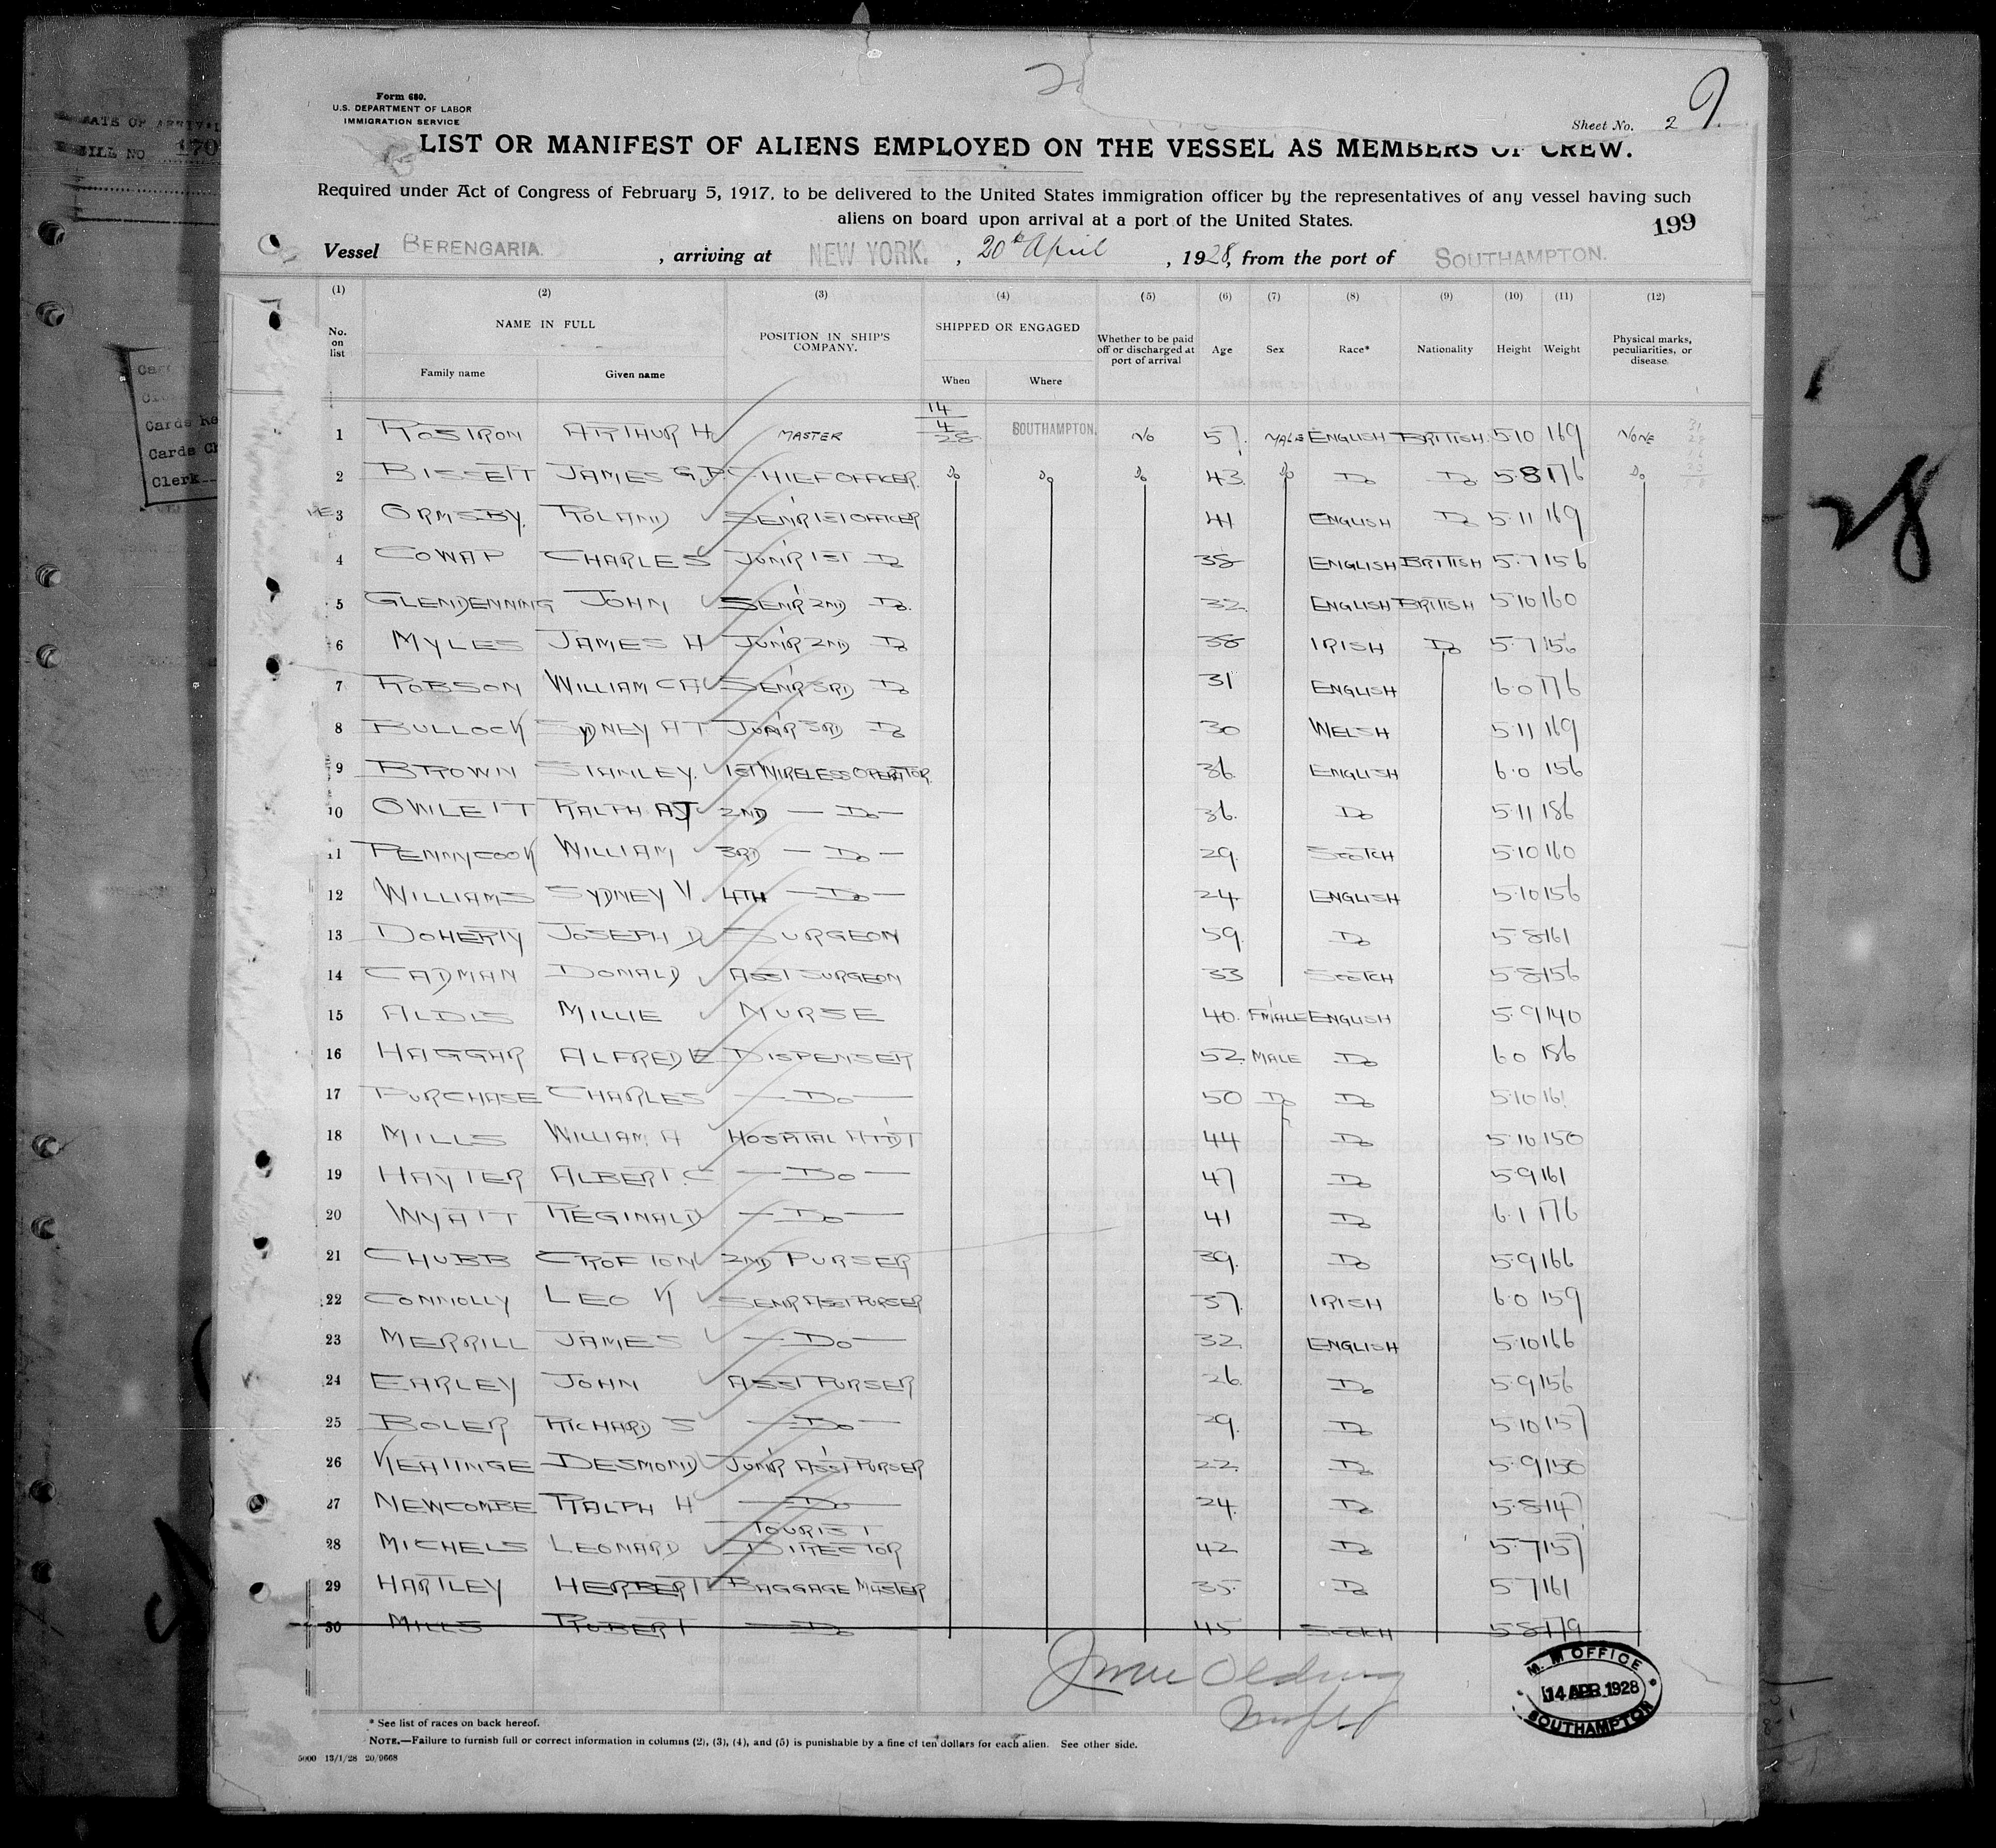 DATE OF ARRIVAL
BILL NO 170
Form 680.
U.S. DEPARTMENT OF LABOR
IMMIGRATION SERVICE
Sheet No. 2
9
LIST OR MANIFEST OF ALIENS EMPLOYED ON THE VESSEL AS MEMBERS OF CREW.
Required under Act of Congress of February 5, 1917, to be delivered to the United States immigration officer by the representatives of any vessel having such
aliens on board upon arrival at a port of the United States.
199
Vessel BERENGARIA. , arriving at NEW YORK. , 20th April , 1928, from the port of SOUTHAMPTON.
(1) (2) (3) (4) (5) (6) (7) (8) (9) (10) (11) (12)
No. on list NAME IN FULL Family name Given name POSITION IN SHIP'S COMPANY. SHIPPED OR ENGAGED When Where Whether to be paid off or discharged at port of arrival Age Sex Race* Nationality Height Weight Physical marks, peculiarities, or disease
1 ROSTRON ARTHUR H MASTER 14/4/28 SOUTHAMPTON. NO 57. MALE ENGLISH BRITISH. 5.10 169 NONE
2 BISSETT JAMES G.P. CHIEF OFFICER. Do Do Do 43 Do Do Do 5.8 176 Do
3 ORMSBY. ROLAND SEN'R 1ST OFFICER 41 ENGLISH Do 5.11 169
4 COWAP CHARLES JUN'R 1ST Do 38 ENGLISH BRITISH 5.7 156
5 GLENDENNING JOHN SEN'R 2ND Do. 32 ENGLISH BRITISH 5.10 160
6 MYLES JAMES H JUN'R 2ND Do 38 IRISH Do 5.7 156
7 ROBSON WILLIAM C A SEN'R 3RD Do 31 ENGLISH 6.0 176
8 BULLOCK SYDNEY A T JUN'R 3RD Do 30 WELSH 5.11 169
9 BROWN STANLEY. 1ST WIRELESS OPERATOR 36. ENGLISH 6.0 156
10 OWLETT RALPH AJ 2ND — Do — 36. Do 5.11 186
11 PENNYCOOK WILLIAM 3RD — Do — 29. SCOTCH 5.10 160
12 WILLIAMS SYDNEY V. 4TH — Do — 24. ENGLISH 5.10 156
13 DOHERTY JOSEPH D SURGEON 59. Do 5.8 161
14 CADMAN DONALD ASST SURGEON 33 SCOTCH 5.8 156
15 ALDIS MILLIE NURSE 40. F'MALE ENGLISH 5.9 140
16 HAGGAR ALFRED E DISPENSER 52. MALE Do 6.0 186
17 PURCHASE CHARLES — Do — 50 Do Do 5.10 161
18 MILLS WILLIAM. A HOSPITAL ATT'D'T 44 Do 5.10 150
19 HAYTER ALBERT. C — Do — 47 Do 5.9 161
20 WYATT REGINALD — Do — 41 Do 6.1 176
21 CHUBB CROFTON 2ND PURSER 39. Do 5.9 166
22 CONNOLLY LEO K SENR ASST PURSER 37. IRISH 6.0 159
23 MERRILL JAMES — Do — 32 ENGLISH 5.10 166
24 EARLEY JOHN ASST PURSER 26. Do 5.9 156
25 BOLER RICHARD S — Do — 29. Do 5.10 157
26 KEATINGE DESMOND JUN'R ASS'T PURSER 22. Do 5.9 150
27 NEWCOMBE RALPH H — Do — 24. Do 5.8 147
28 MICHELS LEONARD TOURIST DIRECTOR 42 Do 5.7 157
29 HARTLEY HERBERT BAGGAGE MASTER 35. Do 5.7 161
30 MILLS ROBERT — Do 45 SCOTCH 5.8 179
M. M OFFICE
14 APR. 1928
SOUTHAMPTON
* See list of races on back hereof.
NOTE.—Failure to furnish full or correct information in columns (2), (3), (4), and (5) is punishable by a fine of ten dollars for each alien. See other side.
5000 13/1/28 20/9668
28